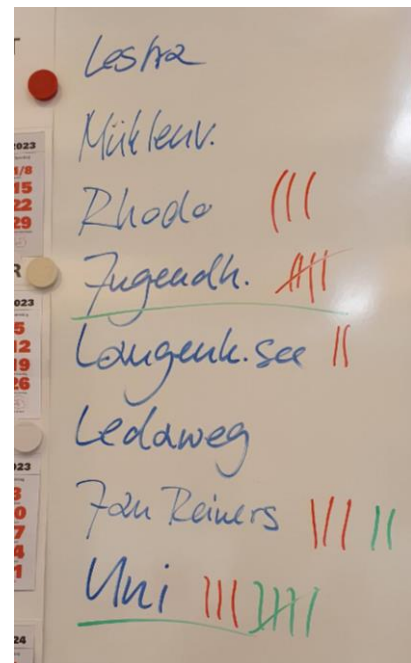 Lestra
Mühlenv.
Rhodo
Jugendh.
Langenk. see
Ledaweg
Jan Reiners
Uni
2023
1/8
15
22
29
2023
5
12
19
26
2023
24